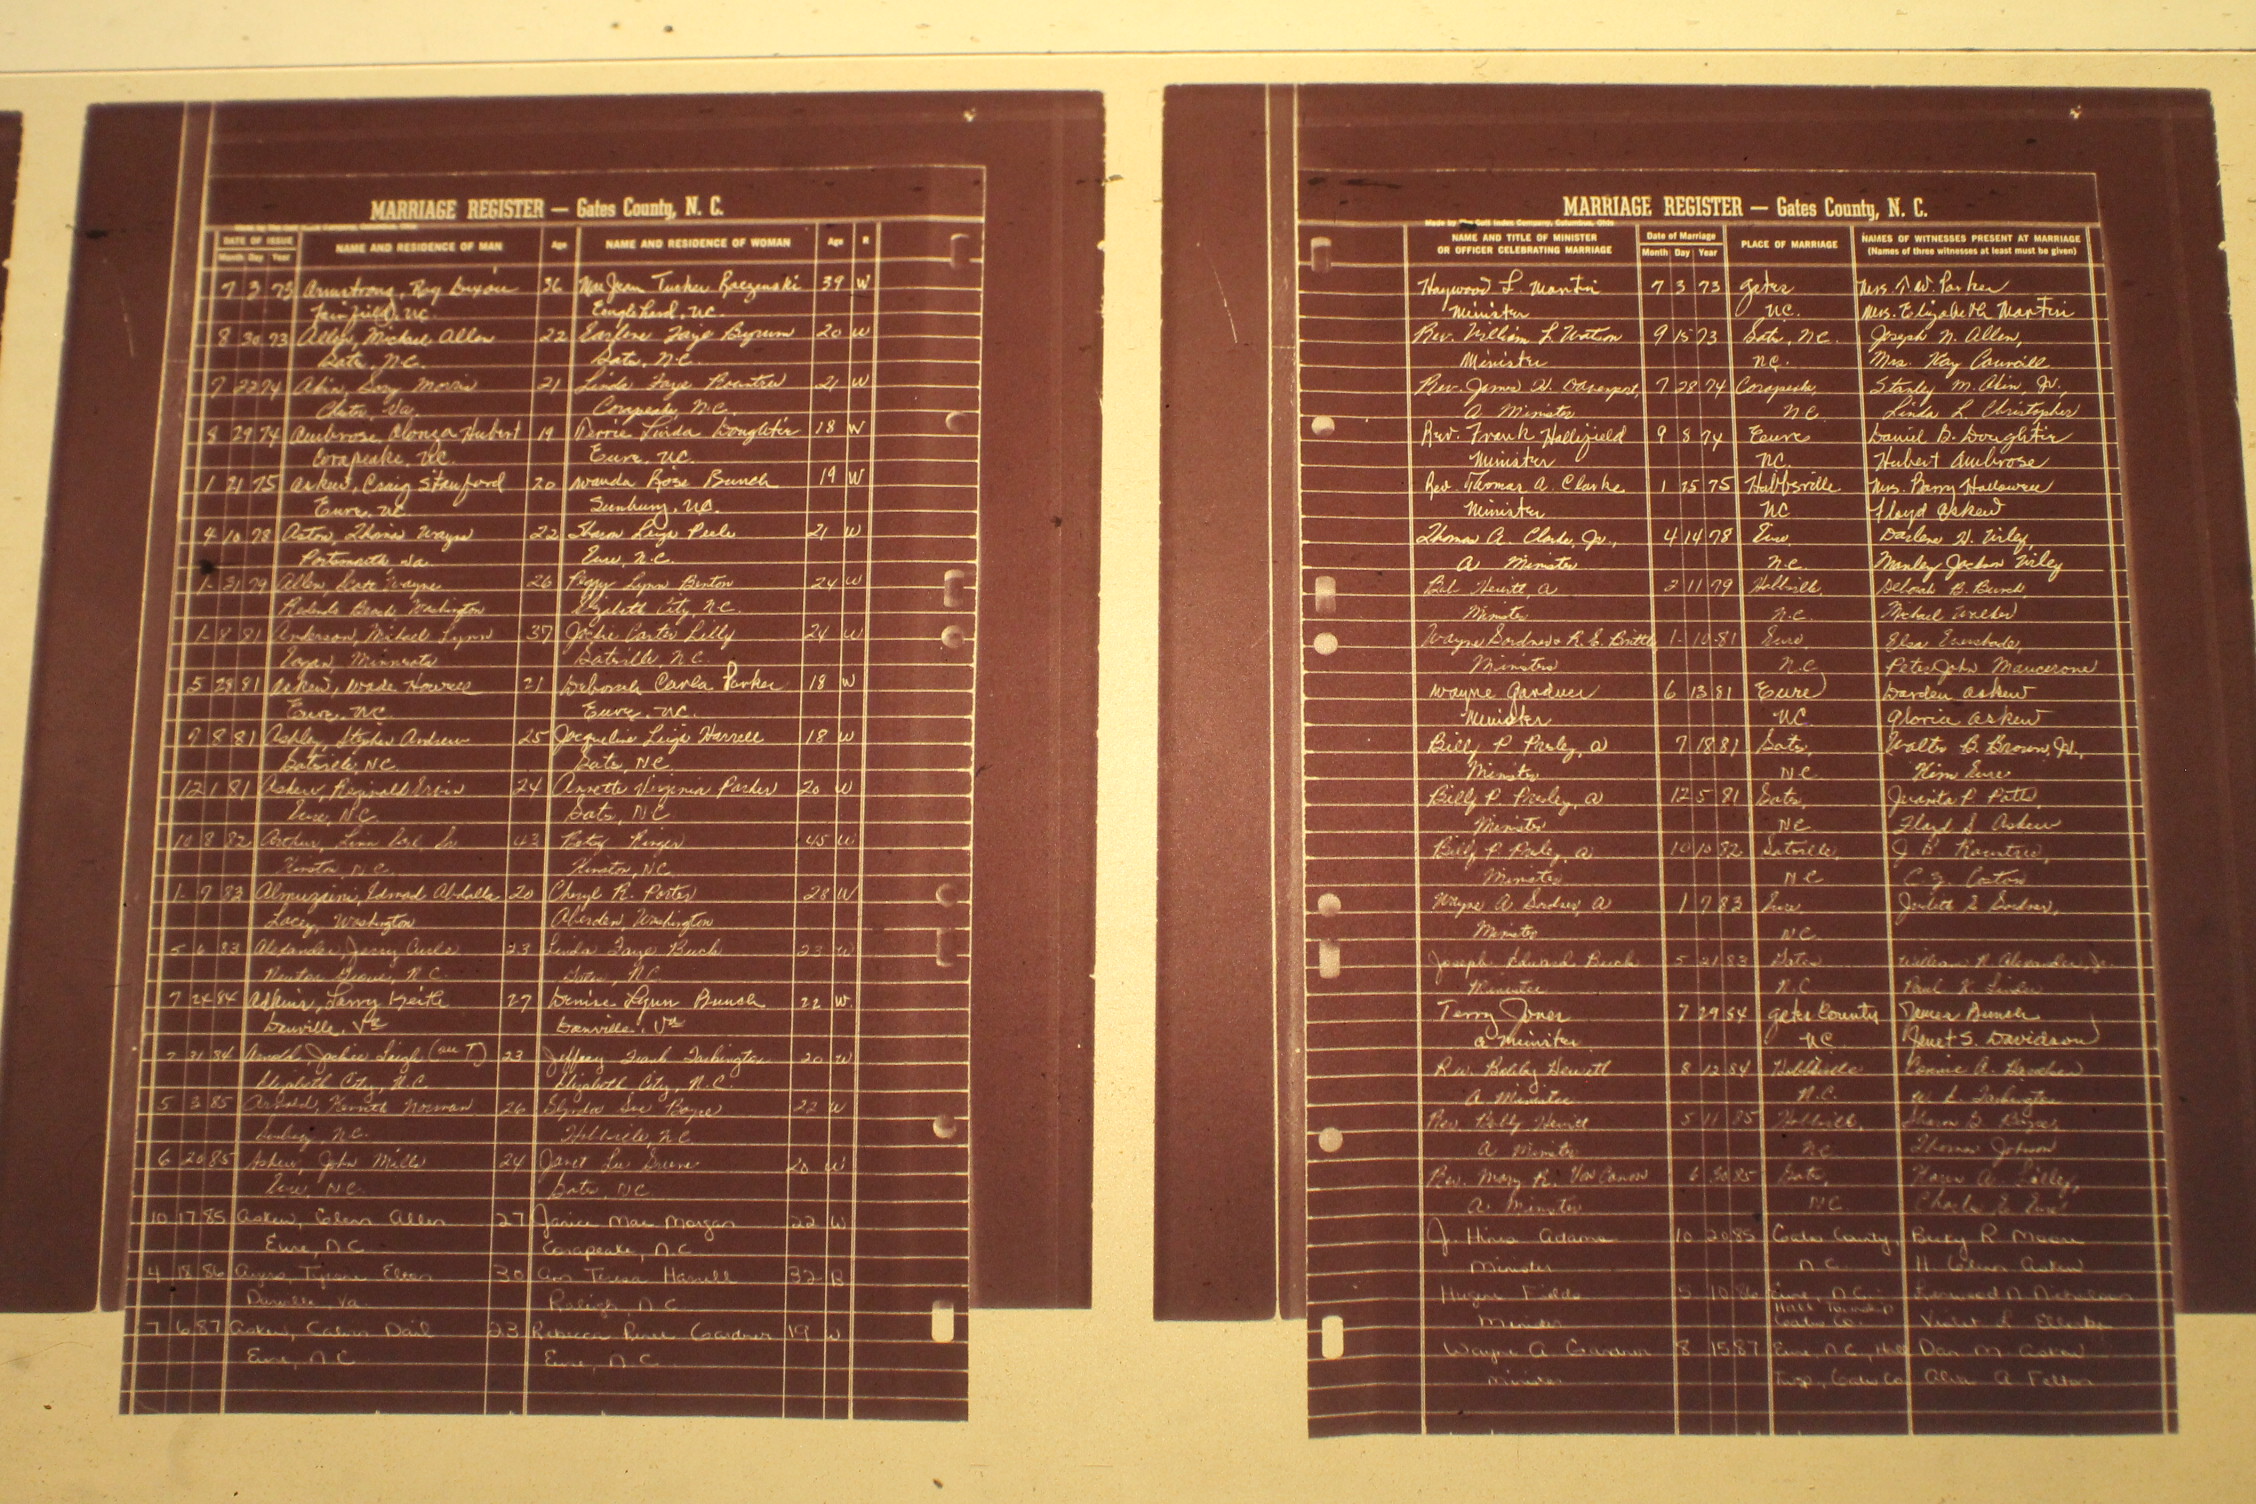 MARRIAGE REGISTER — Gates County, N. C.
DATE OF ISSUE
Month Day Year
NAME AND RESIDENCE OF MAN
Age
NAME AND RESIDENCE OF WOMAN
Age
R
7 3 73 Armstrong, Roy Dixon 36 Jean Tucker 39 W
Fairfield, NC. NC.
8 30 73 Allen, Michael Allen 22 Earlene Faye Byrum 20 W
Gates, N.C. Gates, N.C.
7 22 74 Akin, Morris 21 Linda Faye Rountree 21 W
Va. Corapeake, N.C.
8 29 74 Ambrose, Alonza Hubert 19 Linda Doughtie 18 W
Corapeake, NC. Eure, NC.
1 21 75 Askew, Craig Stanford 20 Wanda Rose Bunch 19 W
Eure, NC. Sunbury, NC.
4 10 78 Aston, Thomas Wayne 22 Sharon Leigh 21 W
Portsmouth Va. Eure, N.C.
1- 31 79 Allen, Scott Wayne 26 Peggy Lynn Benton 24 W
Redondo Beach, Washington Elizabeth City, N.C.
1- 8 81 Anderson, Michael Lynn 37 Jackie Carter Lilly 24 W
Minnesota Gatesville, N.C.
5 28 81 Askew, Wade Howell 21 Deborah Carla Parker 18 W
Eure, NC. Eure, NC.
7 8 81 Ashley, Stephen Andrew 25 Jacqueline Leigh Harrell 18 W
Gatesville, NC. Gates, NC.
12 1 81 Askew, Reginald Ervin 24 Annette Virginia Parker 20 W
Eure, NC. Gates, NC.
10 8 82 Arthur, Linn Earl, Sr 43 Betsy 45 W
Kinston, NC. Kinston, NC.
1- 7 83 Almuzaini, Abdalla 20 Cheryl R. Porter 28 W
Lacey, Washington Aberdeen Washington
5 6 83 Alexander, Jerry 23 Linda Faye Buck 23 W
Newton Grove, N.C. Gates, NC.
7 24 84 Adkins, Larry Keith 27 Denise Lynn Bunch 22 W.
Danville, Va Danville, Va
7 31 84 Arnold, Jackie Leigh (see T) 23 Jeffrey Frank Tarkington 20 W
Elizabeth City, N.C. Elizabeth City, N.C.
5 3 85 Arnold, Kenneth Norman 26 Glynda Sue Boyce 22 W
Sunbury, NC. Hobbsville, NC
6 20 85 Askew, John Mills 24 Janet Lee Greene 20 W
Eure, NC. Gates, NC.
10 17 85 Askew, Glenn Allen 27 Janice Mae Morgan 22 W
Eure, N.C. Corapeake, N.C.
4 18 86 Ayers, Elton 30 Ann Teresa Harrell 32 B
Danville, Va. Raleigh, N.C.
7 6 87 Askew, Calvin Dail 23 Rebecca Renee Gardner 19 W
Eure, N.C. Eure, N.C.
MARRIAGE REGISTER — Gates County, N. C.
Made by The Cott Index Company, Columbus, Ohio
NAME AND TITLE OF MINISTER
OR OFFICER CELEBRATING MARRIAGE
Date of Marriage
Month Day Year
PLACE OF MARRIAGE
NAMES OF WITNESSES PRESENT AT MARRIAGE
(Names of three witnesses at least must be given)
Haywood L. Martin 7 3 73 Gates Mrs. T. W. Parker
Minister NC. Mrs. Elizabeth Martin
Rev. William L. Watson 9 15 73 Gates, N.C. Joseph N. Allen,
Minister N.C. Mrs. Kay Councill
Rev. James H. Davenport, 7 28 74 Corapeake, Stanley M. Akin Jr.,
A Minister N.C. Linda L. Christopher
Rev. Frank Hollifield 9 8 74 Eure Daniel B. Doughtie
Minister NC. Hubert Ambrose
Rev Thomas A. Clarke 1 25 75 Hobbsville Mrs. Barry Hallowell
Minister NC Floyd Askew
Thomas A. Clarke, Jr., 4 14 78 Eure, Darlene H. Wiley,
A Minister N.C. Manley Jackson Wiley
Bob Hewitt, A 2 11 79 Hobbsville, Deborah B. Bunch
Minister N.C. Michael Walker
Wayne Gardner & R. E. Brittle, 1- 10 81 Eure, Elsa
Ministers N.C. Peter John Maucerone
Wayne Gardner 6 13 81 Eure Darden Askew
Minister NC Gloria Askew
Billy P. Presley, A 7 18 81 Gates, Walter B. Brown, Jr.,
Minister NC Kim Eure
Billy P. Presley, A 12 5 81 Gates, Juanita P. Potts,
Minister NC Floyd S. Askew
Billy P. Presley, A 10 10 82 Gatesville, J. B. Rountree,
Minister NC
Wayne A. Gardner, A 1 7 83 Eure, Gardner,
Minister NC
Joseph Edward Buck 5 21 83 Gates William R. Alexander, Jr.
Minister N.C. Paul K.
Terry Jones 7 29 84 Gates County James Bunch
a Minister NC Janet S. Davidson
Rev. Bobby Hewitt 8 12 84 Hobbsville Connie A.
A Minister N.C. W. L. Tarkington
Rev. Bobby Hewitt 5 11 85 Hobbsville, Sharon G. Boyce,
A Minister NC Thomas Johnson
Rev. Mary R. Van Canon 6 30 85 Gates, Karen A.
A Minister NC. Charles E. Eure
J. Adams 10 20 85 Gates County, Becky R. Moore
Minister N.C. H. Glenn Askew
Fields 5 10 86 Eure, N.C. Nicholson
Minister Hall Township Gates Co. Violet L.
Wayne A. Gardner 8 15 87 Eure, N.C., Hall Dan M. Askew
Minister Twsp., Gates Co. A. Felton